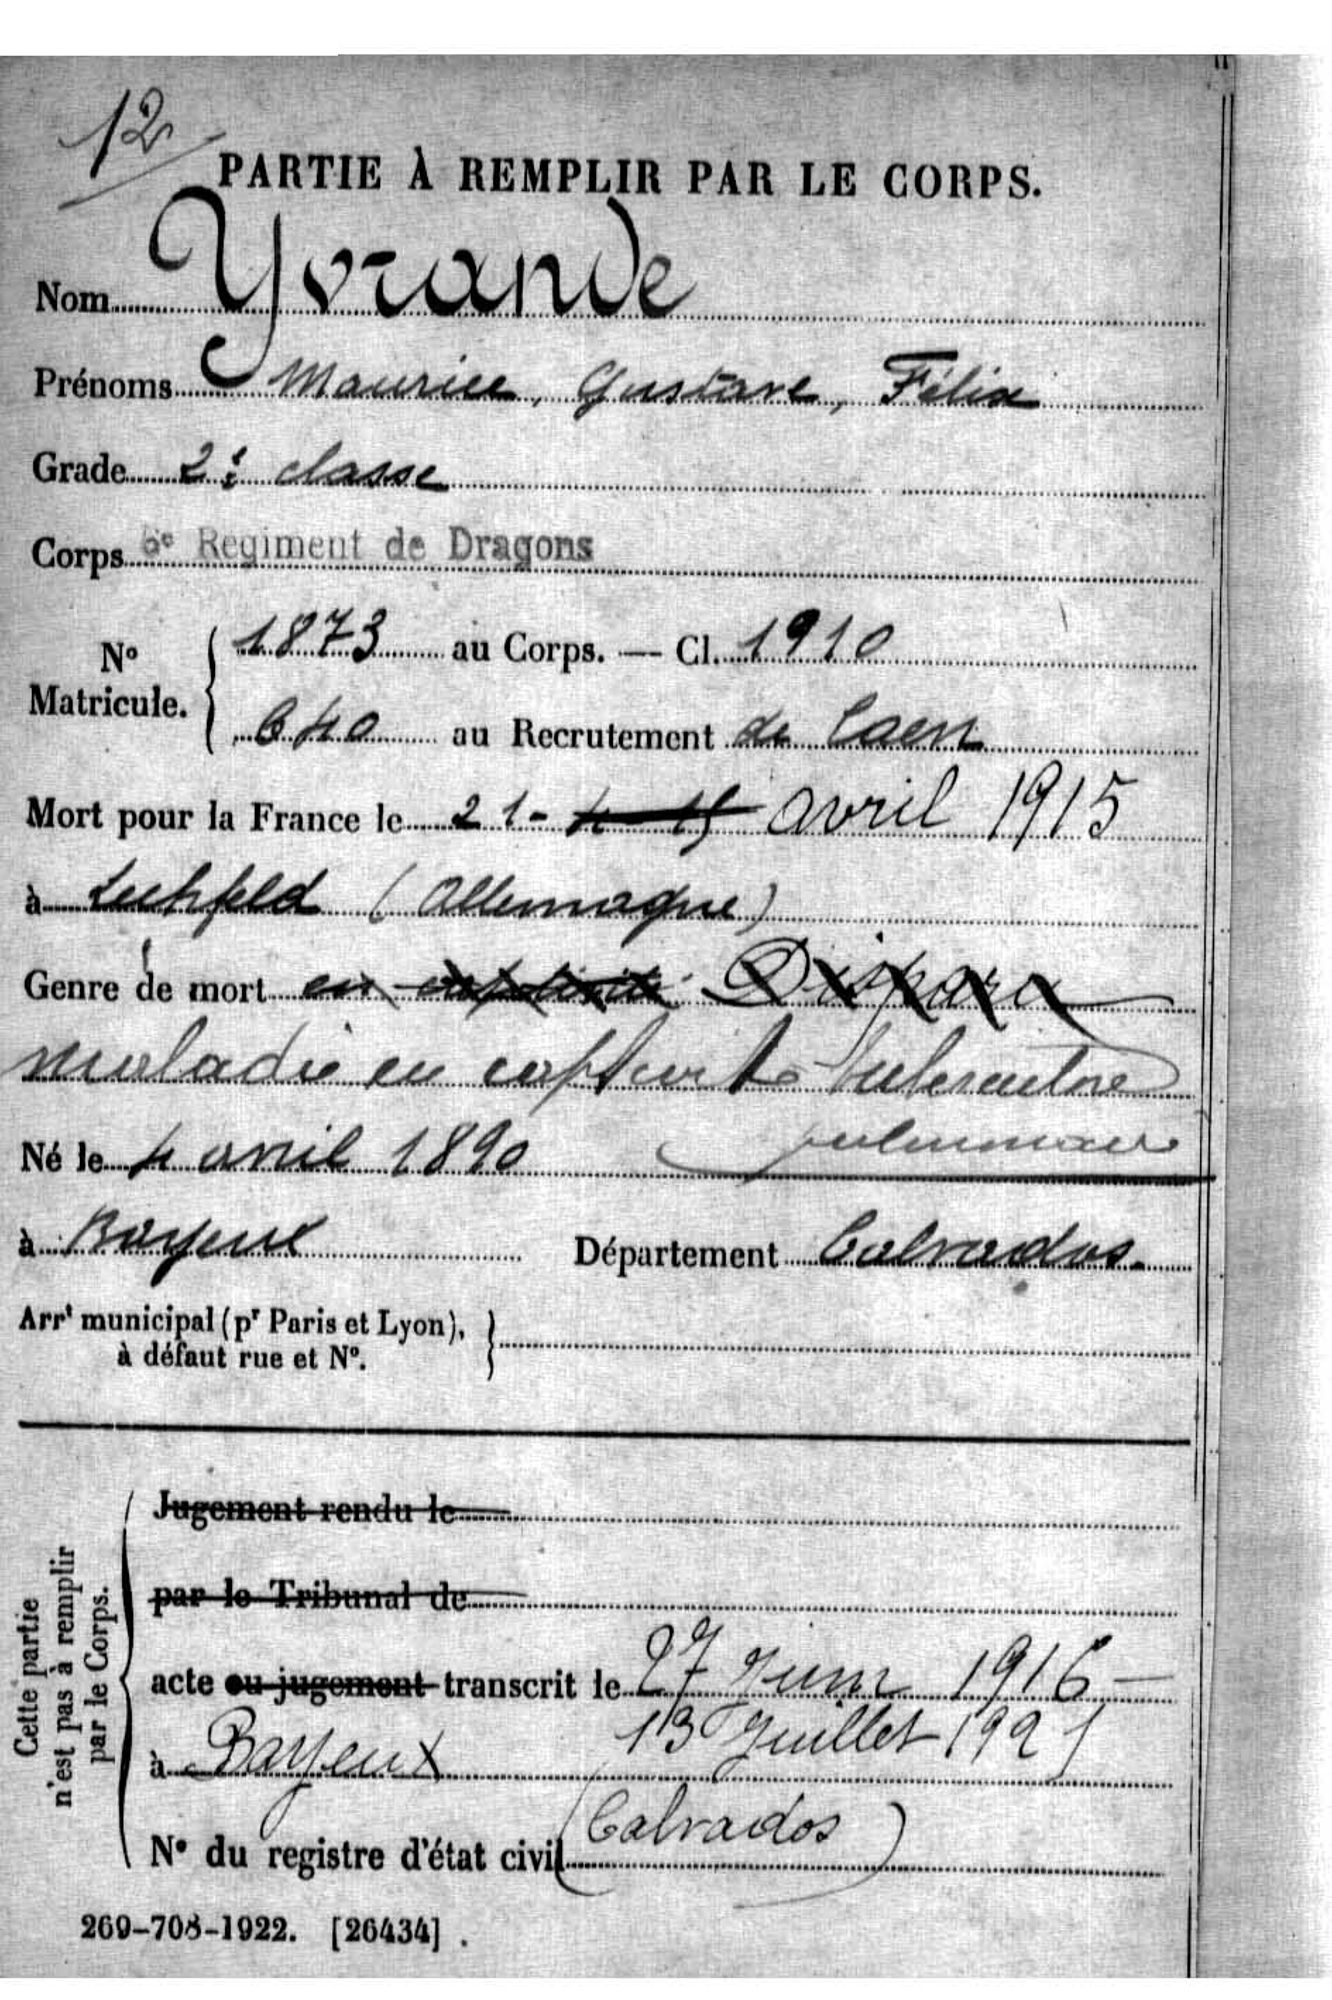 12
PARTIE À REMPLIR PAR LE CORPS.
Nom Yvrande
Prénoms Maurice, Gustave, Félix
Grade 2e classe
Corps 6e Regiment de Dragons
N° Matricule. 1873 au Corps. — Cl. 1910
640 au Recrutement de Caen
Mort pour la France le 21- 4-15 avril 1915
à Lechfeld (Allemagne)
Genre de mort en captivité Disparu
maladie en captivité tuberculose
pulmonaire
Né le 4 avril 1890
à Bayeux Département Calvados.
Arrt municipal (pr Paris et Lyon),
à défaut rue et N°.
Cette partie
n'est pas à remplir
par le Corps.
Jugement rendu le
par le Tribunal de
acte ou jugement transcrit le 27 Juin 1916 -
13 Juillet 1921
à Bayeux
(Calvados)
N° du registre d'état civil
269-708-1922. [26434].